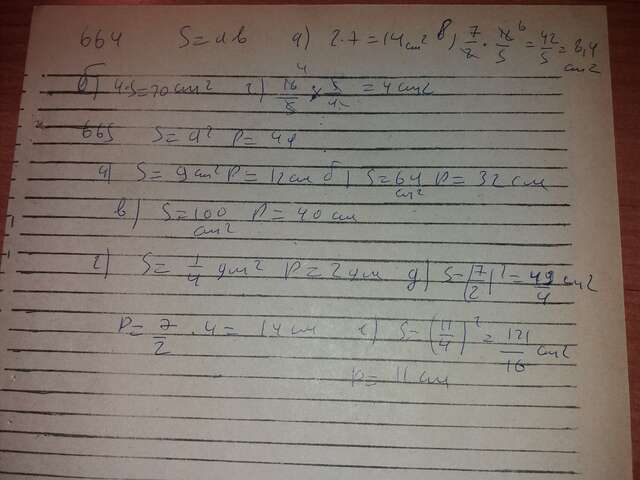 664 S=ab а) 2·7=14см² в) 7/2·12/5=42/5=8,4 см²
б) 4·5=20см² г) 16/5·5/4=4см²
665 S=a² P=4a
а) S=9см² P=12см б) S=64 см² P=32см
в) S=100 см² P=40см
г) S=1/4 дм² P=2дм д) S=(7/2)²=49/4 см²
P=7/2·4=14см е) S=(11/4)²=121/16 см²
P=11см